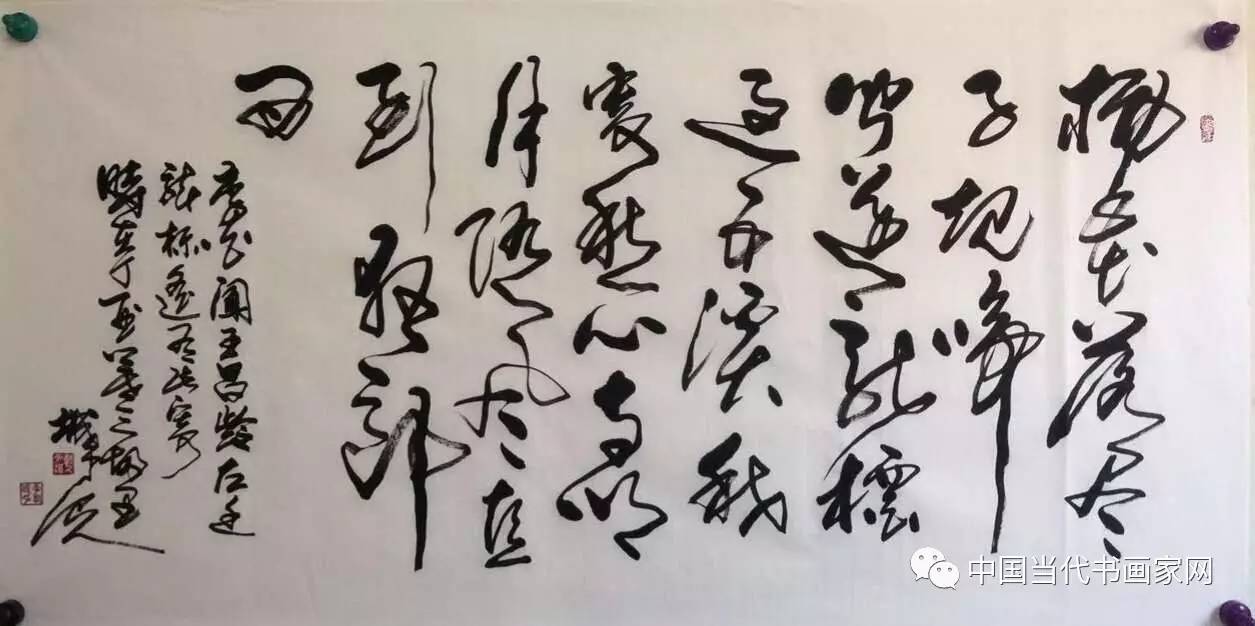 楊花落尽
子规啼
闻道龙標
过五溪我
寄愁心与明
月随风尽直
到夜郎
西
李白闻王昌龄左迁
龙标遥有此寄
時在丁酉
中国当代书画家网